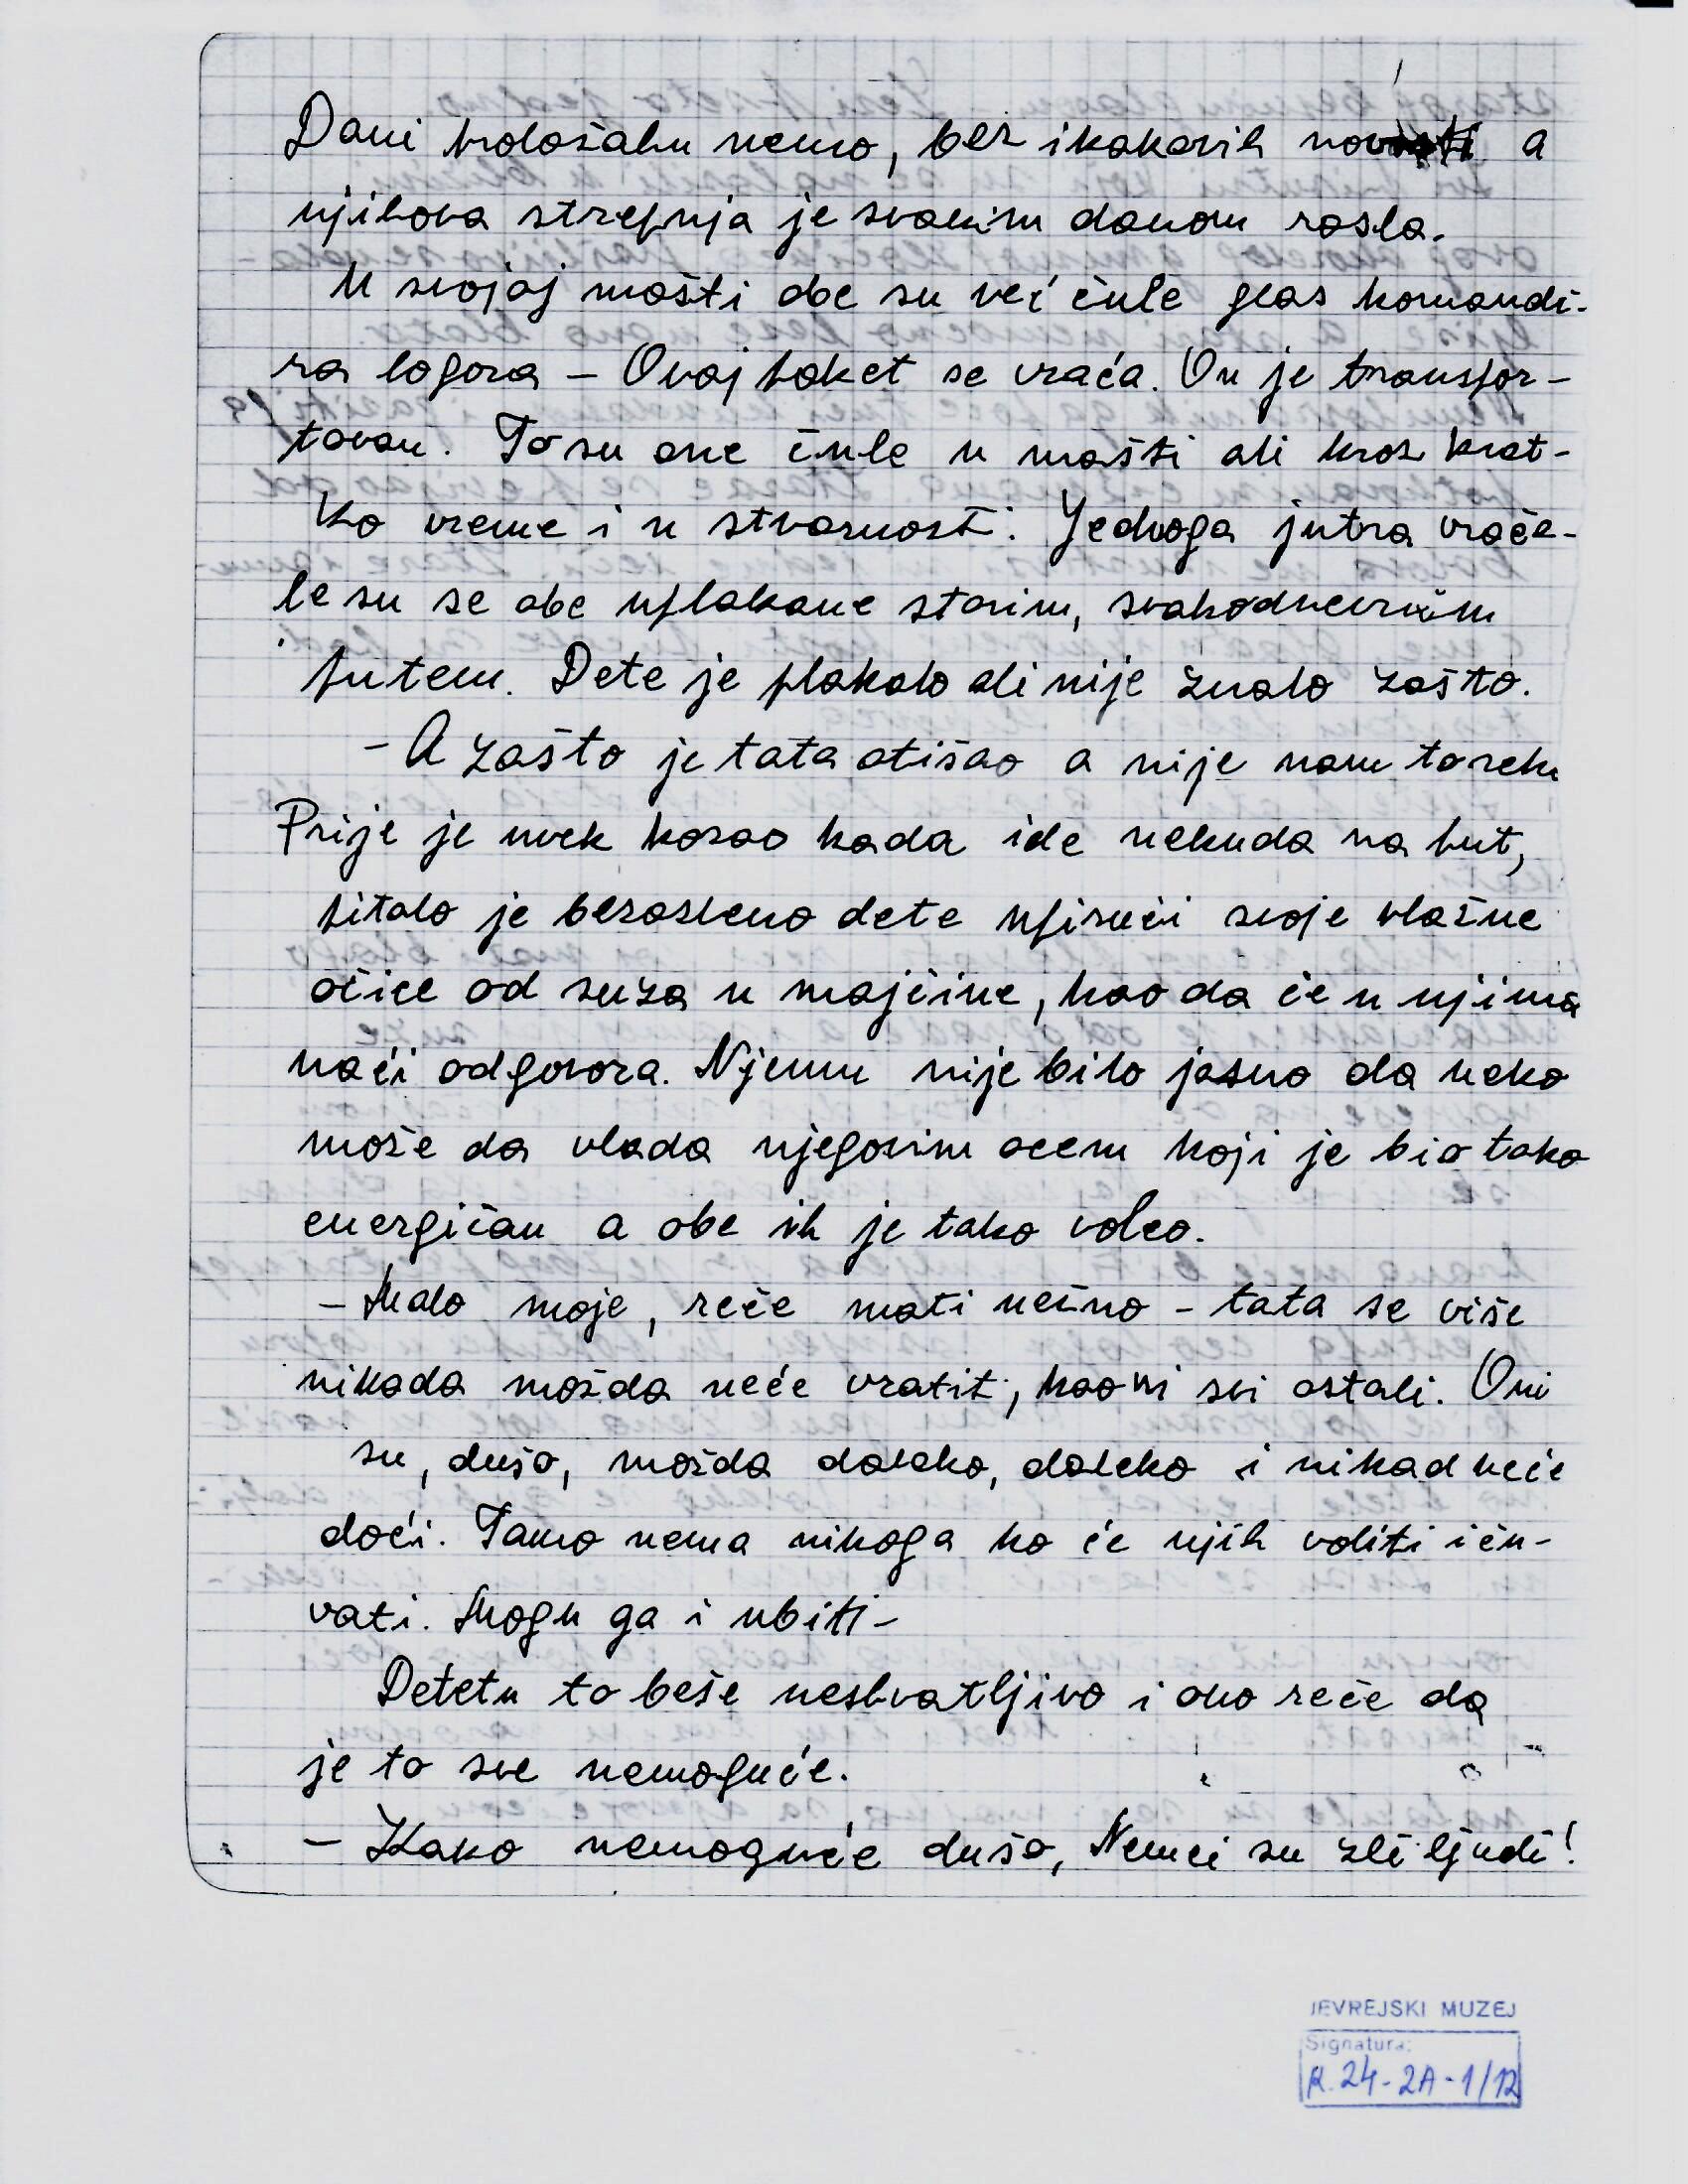 Dani prolažahu nemo, bez ikakovih novosti a
njihova strepnja je svakim danom rasla.
U svojoj mašti obe su već čule glas komandi-
ra logora – Ovaj paket se vraća. On je transpor-
tovan. To su one čule u mašti ali kroz krat-
ko vreme i u stvarnosti. Jednoga jutra vraća-
le su se obe uplakane starim, svakodnevnim
putem. Dete je plakalo ali nije znalo zašto.
– A zašto je tata otišao a nije nam to reku
Prije je uvek kazao kada ide nekuda na put,
pitalo je bezazleno dete upirući svoje vlažne
očice od suza u majčine, kao da će u njima
naći odgovora. Njemu nije bilo jasno da neko
može da vlada njegovim ocem koji je bio tako
energičan a obe ih je tako voleo.
– Malo moje, reče mati nežno – tata se više
nikada možda neće vratit, kao ni svi ostali. Oni
su, dušo, možda daleko, daleko i nikad neće
doći. Tamo nema nikoga ko će njih voliti i ču-
vati. Mogu ga i ubiti –
Detetu to beše neshvatljivo i ono reče da
je to sve nemoguće.
– Kako nemoguće dušo, Nemci su zli ljudi!
JEVREJSKI MUZEJ
Signatura:
R. 24-2A-1/12